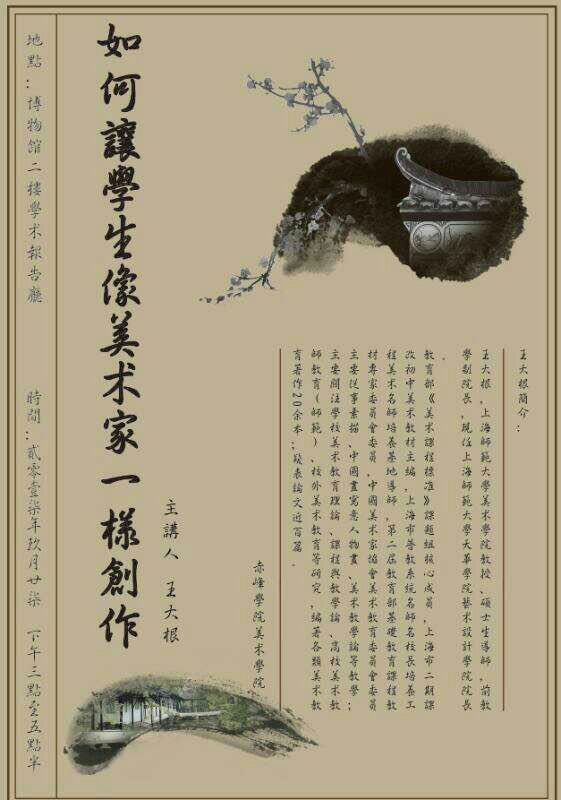 如何讓學生像美术家一樣創作
主講人 王大根
地點：博物館二樓學术報告廳
時間：貳零壹柒年玖月廿柒 下午三點至五點半
王大根簡介：
王大根，上海師範大學美术學院教授、碩士生導師，前教
學副院長，現任上海師範大學天華學院藝术設計學院院長
。
教育部《美术課程標准》課題組核心成員，上海市二期課
改初中美术教材主編，上海市普教系統名師名校長培養工
程美术名師培養基地導師，第二屆教育部基礎教育課程教
材專家委員會委員，中國美术家協會美术教育委員會委員
主要從事素描、中國畫寫意人物畫、美术教學論等教學；
主要關注學校美术教育理論、課程與教學論、高校美术教
師教育（師範）、校外美术教育等研究，編著各類美术教
育著作20余本；發表論文近百篇．
赤峰學院美术學院